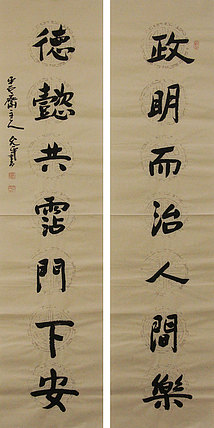 政明而治人間樂
德懿共霑門下安